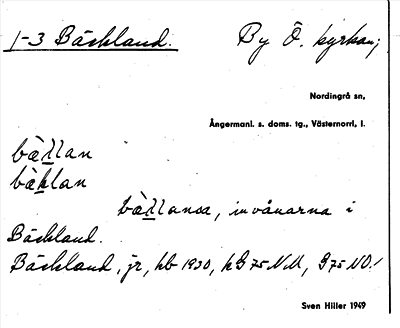 1-3 Bäckland. By Ö. kyrkan;
Nordingrå sn,
Ångermanl. s. doms. tg., Västernorrl, l.
bällan
bäklan
bällansa, invånarna i
Bäckland.
Bäckland, jr, hb 1930, kG 75 NV, G 75 NO!
Sven Hiller 1949